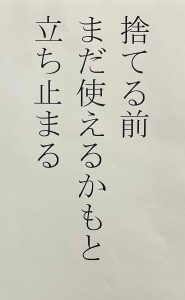 捨てる前
まだ使えるかもと
立ち止まる